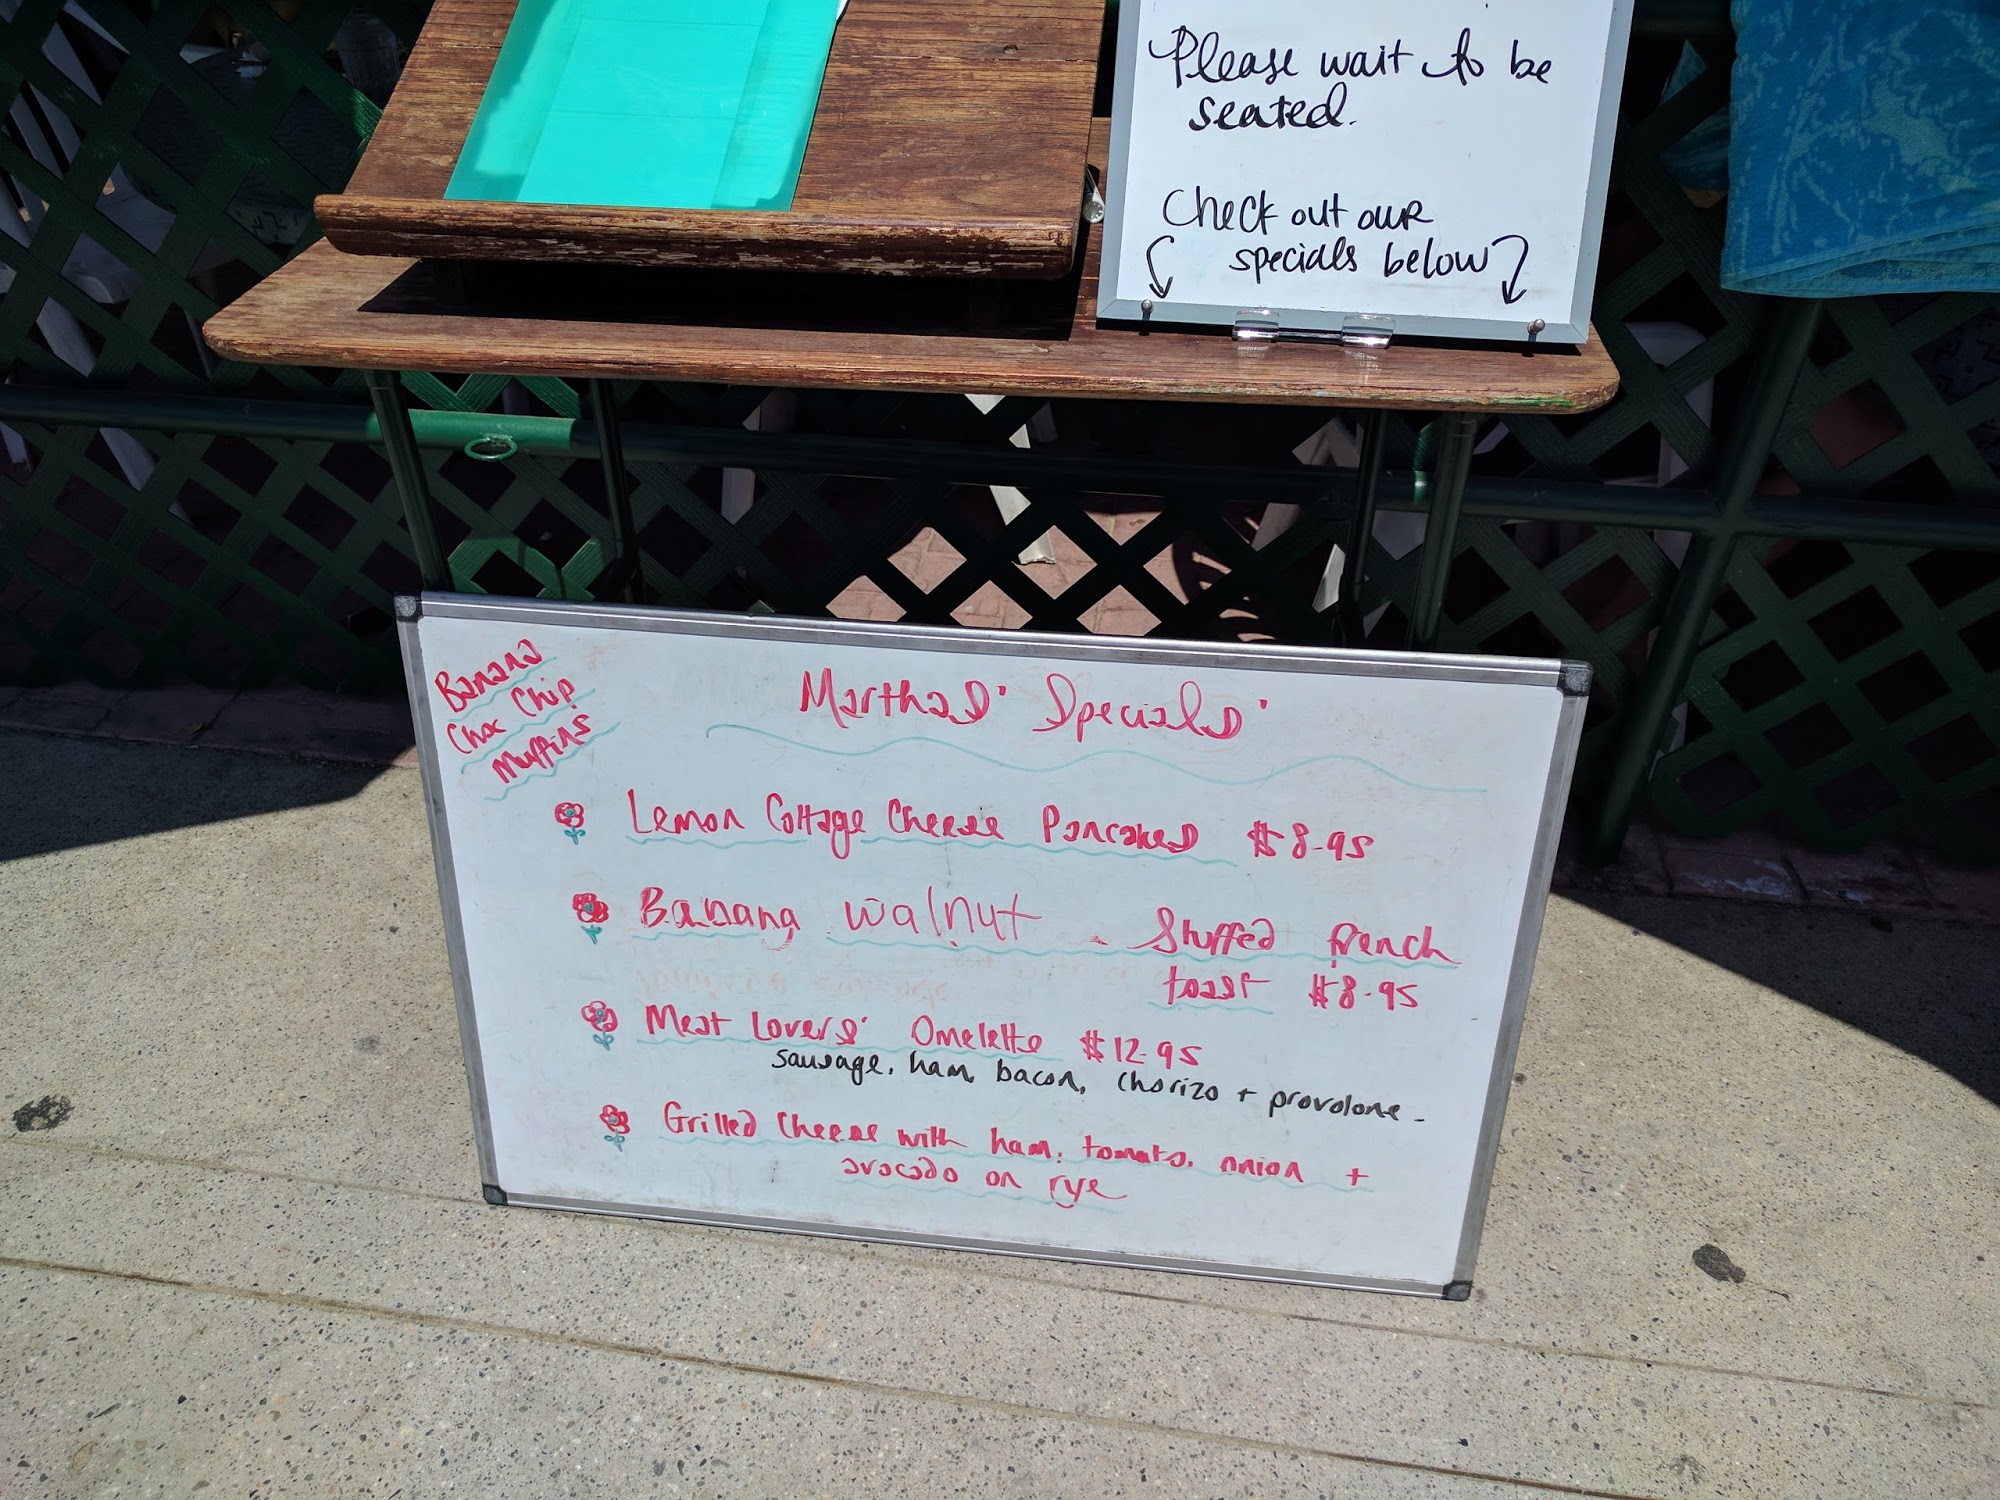 Please wait to be
seated.
Check out our
specials below
Banana
Choc Chip
Muffins
Marthas' Specials'
Lemon Cottage Cheese Pancakes $8.95
Banana walnut Stuffed french
toast $8.95
Meat Lovers' Omelette $12.95
sausage, ham, bacon, chorizo + provolone
Grilled Cheese with ham, tomato, onion +
avocado on rye